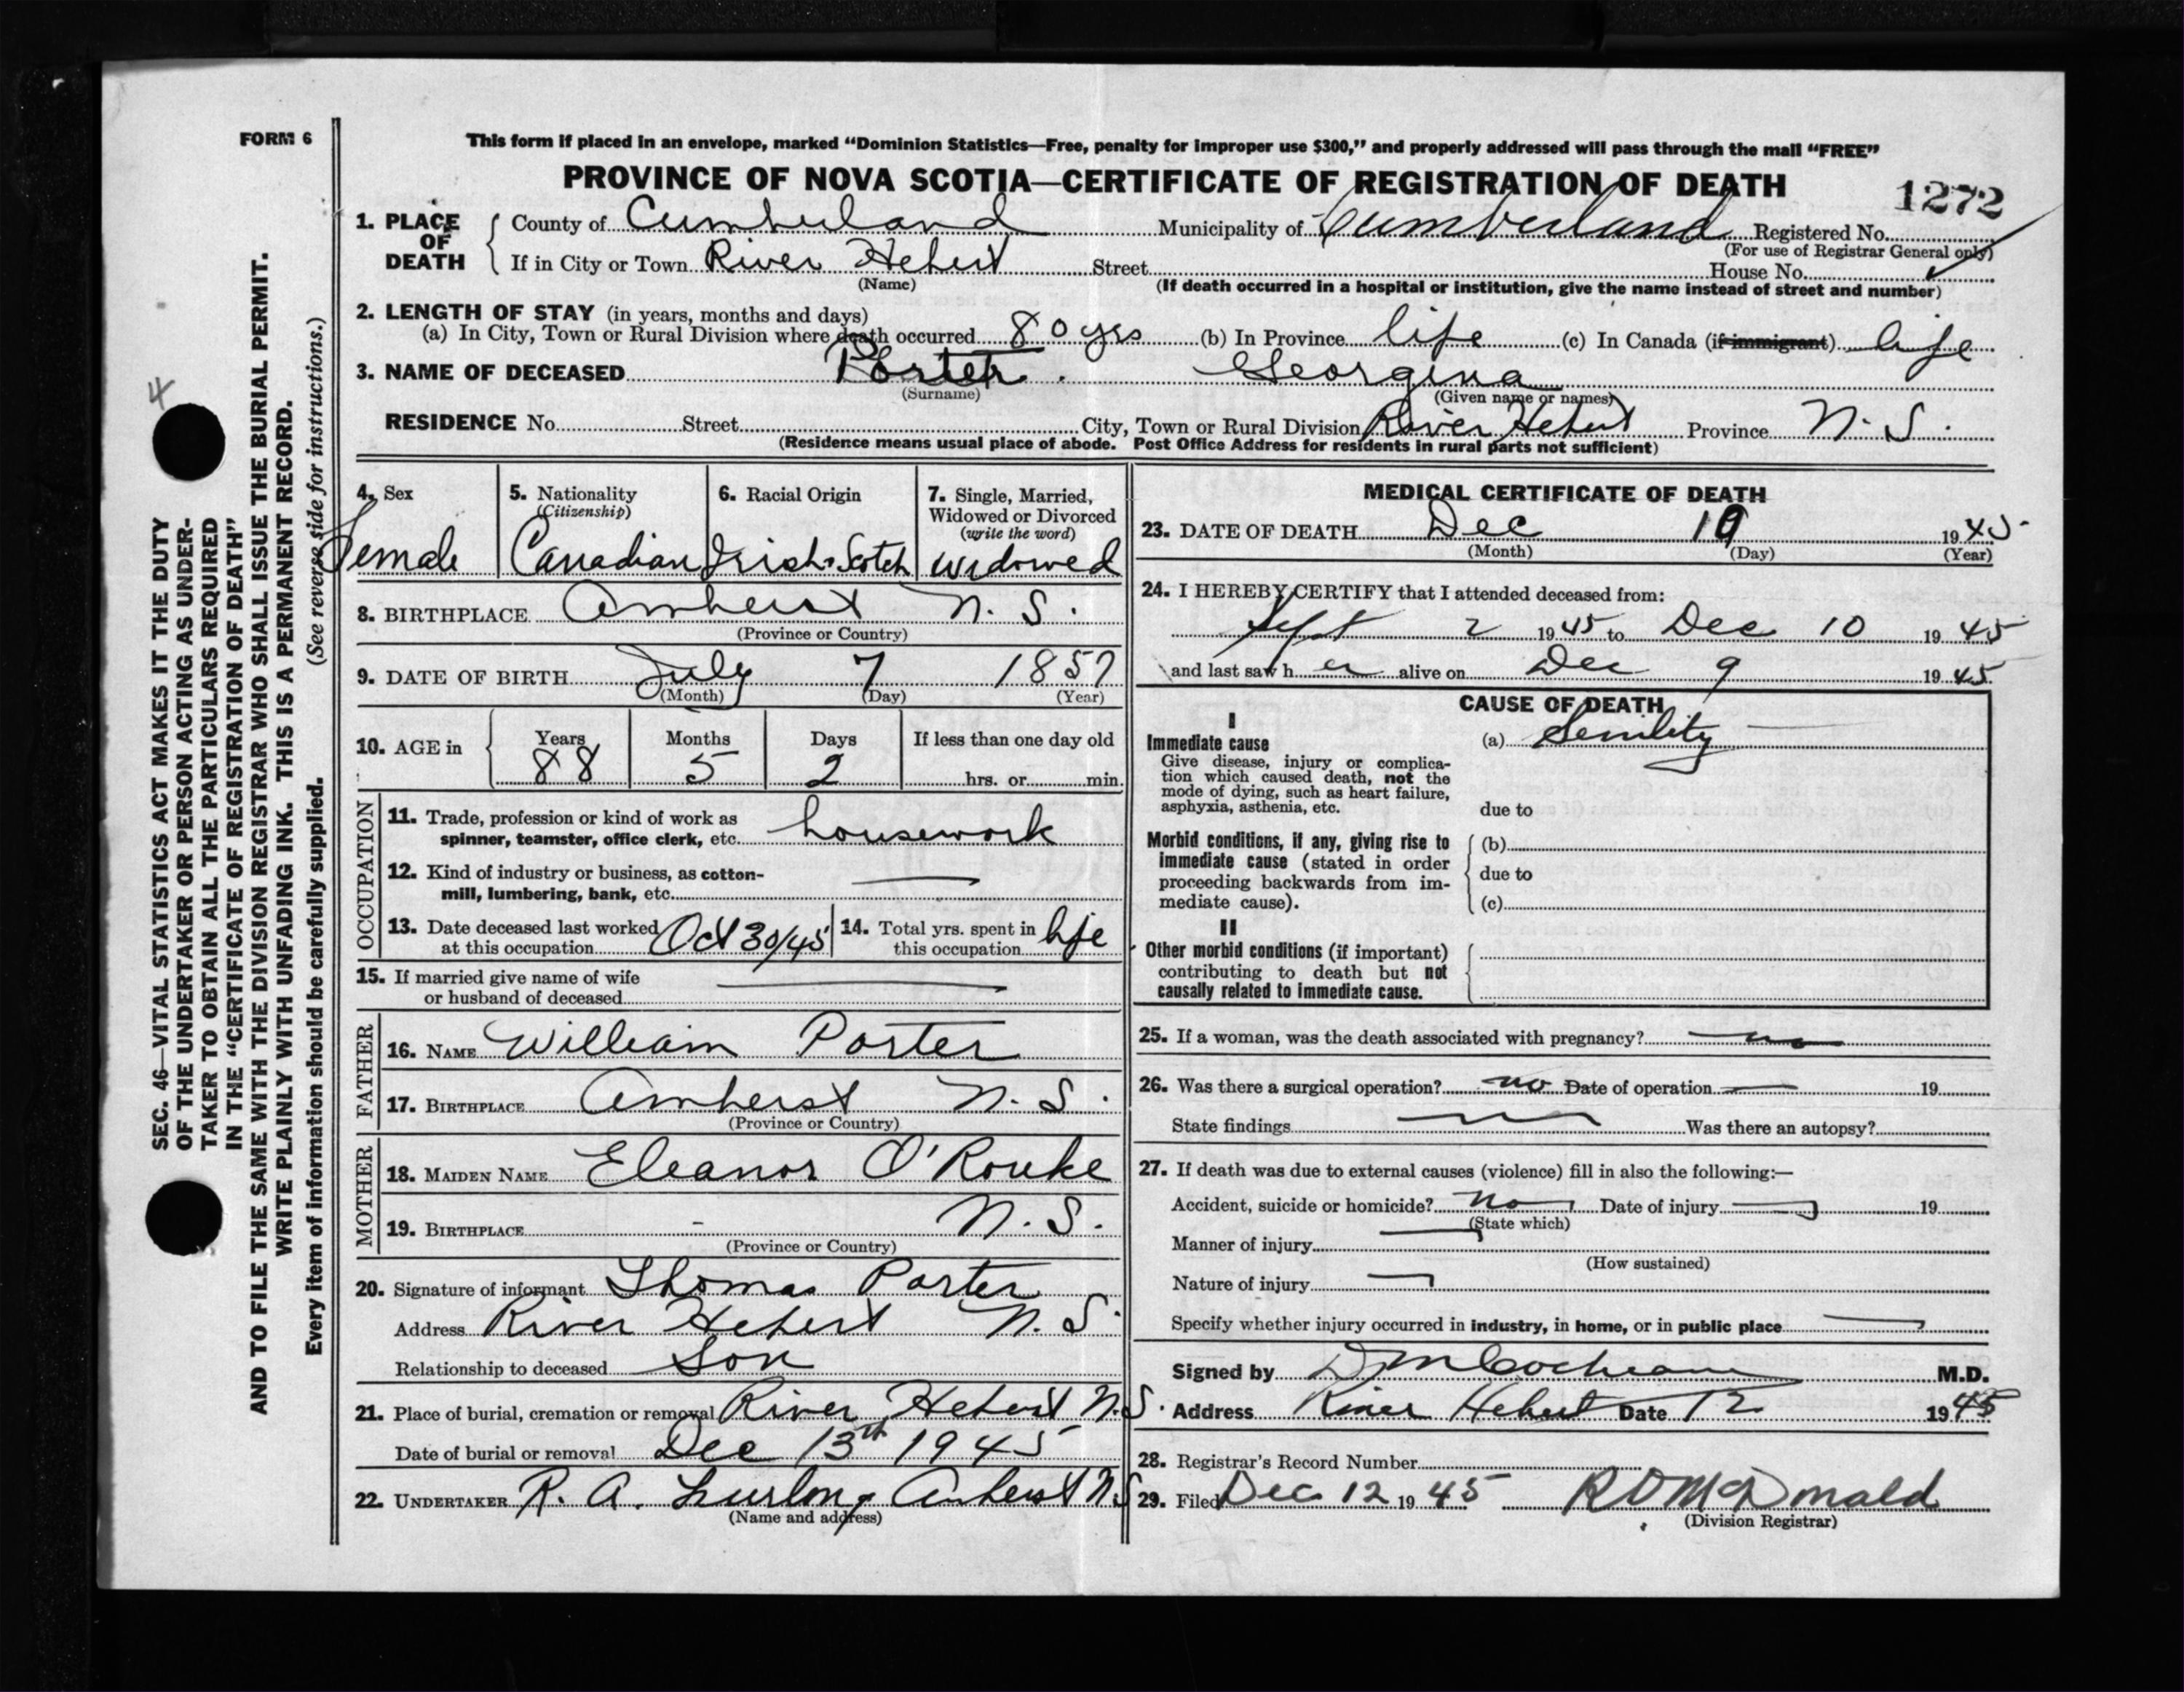 FORM 6
This form if placed in an envelope, marked “Dominion Statistics—Free, penalty for improper use $300,” and properly addressed will pass through the mail “FREE”
PROVINCE OF NOVA SCOTIA—CERTIFICATE OF REGISTRATION OF DEATH
1272
1. PLACE OF DEATH County of Cumberland Municipality of Cumberland Registered No.
(For use of Registrar General only)
If in City or Town River Hebert Street House No.
(Name) (If death occurred in a hospital or institution, give the name instead of street and number)
2. LENGTH OF STAY (in years, months and days)
(a) In City, Town or Rural Division where death occurred 80 yrs (b) In Province life (c) In Canada (if immigrant) life
3. NAME OF DECEASED Porter Georgina
(Surname) (Given name or names)
RESIDENCE No. Street City, Town or Rural Division River Hebert Province N.S.
(Residence means usual place of abode. Post Office Address for residents in rural parts not sufficient)
4. Sex Female
5. Nationality (Citizenship) Canadian
6. Racial Origin Irish-Scotch
7. Single, Married, Widowed or Divorced (write the word) widowed
8. BIRTHPLACE Amherst N.S.
(Province or Country)
9. DATE OF BIRTH July 7 1857
(Month) (Day) (Year)
10. AGE in Years 88 Months 5 Days 2 If less than one day old
hrs. or min.
OCCUPATION
11. Trade, profession or kind of work as
spinner, teamster, office clerk, etc. housework
12. Kind of industry or business, as cotton-
mill, lumbering, bank, etc.
13. Date deceased last worked
at this occupation Oct 30/45
14. Total yrs. spent in
this occupation life
15. If married give name of wife
or husband of deceased
FATHER
16. NAME William Porter
17. BIRTHPLACE Amherst N.S.
(Province or Country)
MOTHER
18. MAIDEN NAME Eleanor O'Rouke
19. BIRTHPLACE - N.S.
(Province or Country)
20. Signature of informant Thomas Porter
Address River Hebert N.S.
Relationship to deceased Son
21. Place of burial, cremation or removal River Hebert N.S.
Date of burial or removal Dec 13th 1945
22. UNDERTAKER R. A. Furlong Amherst N.S
(Name and address)
MEDICAL CERTIFICATE OF DEATH
23. DATE OF DEATH Dec 1945
(Month) (Day) (Year)
24. I HEREBY CERTIFY that I attended deceased from:
Sept 2 1945 to Dec 10 1945
and last saw her alive on Dec 9 1945
CAUSE OF DEATH
I
Immediate cause
Give disease, injury or complica-
tion which caused death, not the
mode of dying, such as heart failure,
asphyxia, asthenia, etc.
(a) Senility
due to
Morbid conditions, if any, giving rise to
immediate cause (stated in order
proceeding backwards from im-
mediate cause).
(b)
due to
(c)
II
Other morbid conditions (if important)
contributing to death but not
causally related to immediate cause.
25. If a woman, was the death associated with pregnancy? no
26. Was there a surgical operation? no Date of operation 19
State findings Was there an autopsy?
27. If death was due to external causes (violence) fill in also the following:—
Accident, suicide or homicide? no Date of injury 19
(State which)
Manner of injury
(How sustained)
Nature of injury
Specify whether injury occurred in industry, in home, or in public place
Signed by D M Cochran M.D.
Address River Hebert Date 12 1945
28. Registrar's Record Number
29. Filed Dec 12 1945 R D McDonald
(Division Registrar)
4
SEC. 46—VITAL STATISTICS ACT MAKES IT THE DUTY
OF THE UNDERTAKER OR PERSON ACTING AS UNDER-
TAKER TO OBTAIN ALL THE PARTICULARS REQUIRED
IN THE “CERTIFICATE OF REGISTRATION OF DEATH”
AND TO FILE THE SAME WITH THE DIVISION REGISTRAR WHO SHALL ISSUE THE BURIAL PERMIT.
WRITE PLAINLY WITH UNFADING INK. THIS IS A PERMANENT RECORD.
Every item of information should be carefully supplied. (See reverse side for instructions.)